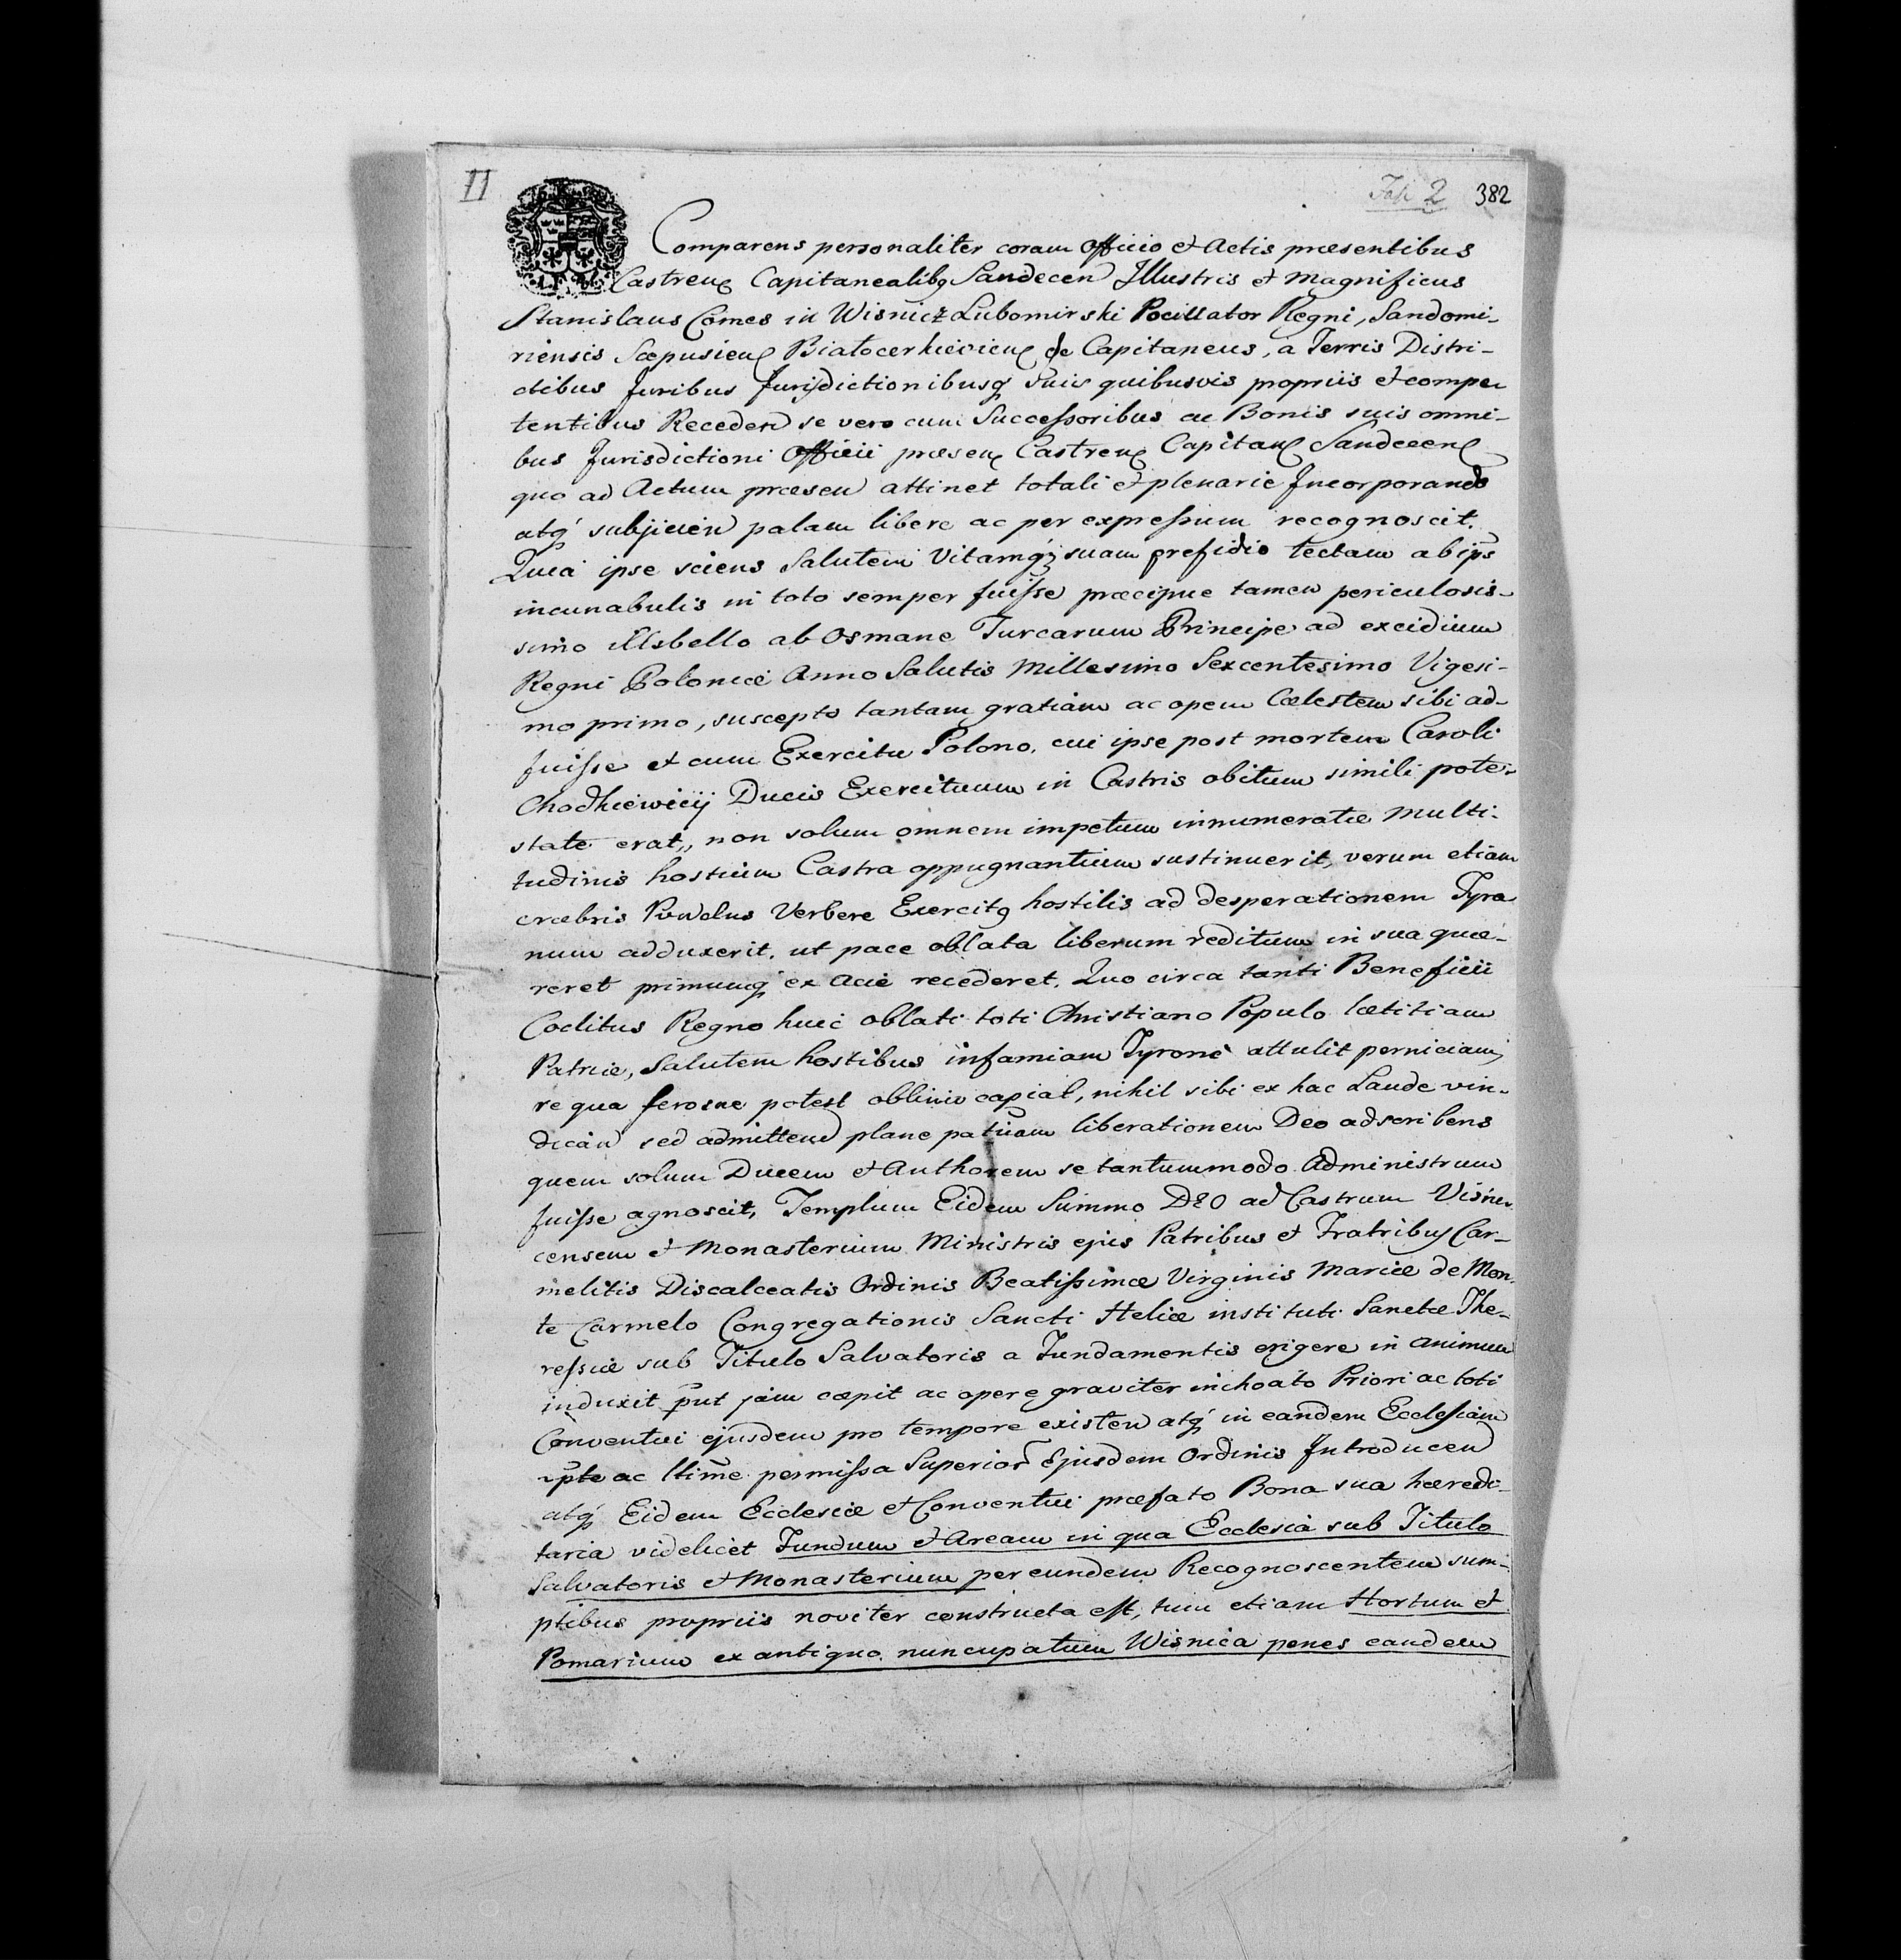 II
Fasc 2 382
Comparens personaliter coram Officio et Actis præsentibus
Castren Capitanealibq Sandecen Illustris et Magnificus
Stanislaus Comes in Wisnicz Lubomirski Pocillator Regni, Sandomi-
riensis Scepusien Białocerkievien de Capitaneus, a Terris Distri-
ctibus Juribus Jurisdictionibusq Suis quibusvis propriis et compe-
tentibus Receden se vero cum Successoribus ac Bonis suis omni-
bus Jurisdictioni Officii præsen Castren Capitan Sandecen
quo ad Actum præsen attinet totali et plenarie Incorporando
atq subjicien palam libere ac per expressum recognoscit.
Quia ipse sciens Salutem Vitamq suam presidio tectam ab ips
incunabulis in toto semper fuisse præcipue tamen periculosis-
simo illo bello ab Osmane Turcarum Principe ad excidium
Regni Poloniæ Anno Salutis Millesimo Sexcentesimo Vigesi-
mo primo, suscepto tantam gratiam ac opem Cœlestem sibi ad-
fuisse et cum Exercitu Polono, cui ipse post mortem Caroli
Chodkiewicij Ducis Exercituum in Castris obitum simili pote-
state erat, non solum omnem impetum innumeratæ multi-
tudinis hostium Castra oppugnantium sustinuerit, verum etiam
cræbris Verbere Exercitq hostilis ad desperationem Tyra
num adduxerit, ut pace oblata liberum reditum in sua quæ-
reret primumq ex Acie recederet. Quo circa tanti Beneficii
Coelitus Regno huic oblati toti Christiano Populo lætitiam
Patriæ, Salutem hostibus infamiam Tyrone attulit perniciam,
re qua potest oblivio capiat, nihil sibi ex hac Laude vin-
dican sed admitten plane liberationem Deo adscribens
quem solum Ducem et Authorem se tantummodo Administrum
fuisse agnoscit, Templum Eidem Summo DEO ad Castrum Visni-
censem et Monasterium Ministris ejus Patribus et Fratribus Car-
melitis Discalceatis Ordinis Beatissimæ Virginis Mariæ de Mon-
te Carmelo Congregationis Sancti Heliæ instituti Sanctæ The-
ressiæ sub Titulo Salvatoris a Fundamentis erigere in animum
induxit put jam cæpit ac opere graviter inchoato Priori ac toti
Conventui ejusdem pro tempore existen atq in eandem Ecclesiam
rpte ac ltime permissa Superior Ejusdem Ordinis Introducen
atq Eidem Ecclesiæ et Conventui præfato Bona sua hæredi-
taria videlicet Fundum et Aream in qua Ecclesia sub Titulo
Salvatoris et Monasterium per eundem Recognoscentem sum-
ptibus propriis noviter constructa est, tum etiam Hortum et
Pomarium ex antiquo nuncupatum Wisnica penes eandem